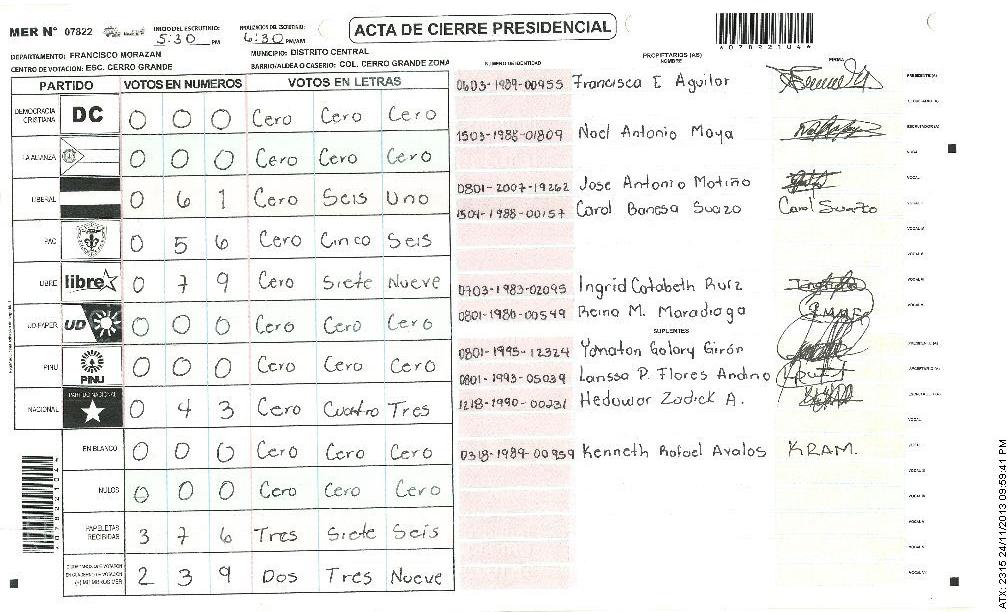 MER N° 07822
INICIO DEL ESCRUTINIO: 5:30 PM
FINALIZACION DEL ESCRUTINIO: 6:30 PM/AM
ACTA DE CIERRE PRESIDENCIAL
DEPARTAMENTO: FRANCISCO MORAZAN
MUNICIPIO: DISTRITO CENTRAL
CENTRO DE VOTACIÓN: ESC. CERRO GRANDE
BARRIO/ALDEA O CASERIO: COL. CERRO GRANDE ZONA
PARTIDO VOTOS EN NUMEROS VOTOS EN LETRAS
DEMOCRACIA CRISTIANA DC 0 0 0 Cero Cero Cero
LA ALIANZA 0 0 0 Cero Cero Cero
LIBERAL 0 6 1 Cero Seis Uno
PAC 0 5 6 Cero Cinco Seis
LIBRE libre 0 7 9 Cero Siete Nueve
UD-FAPER UD 0 0 0 Cero Cero Cero
PINU PINU 0 0 0 Cero Cero Cero
NACIONAL PARTIDO NACIONAL 0 4 3 Cero Cuatro Tres
EN BLANCO 0 0 0 Cero Cero Cero
NULOS 0 0 0 Cero Cero Cero
PAPELETAS RECIBIDAS 3 7 6 Tres Siete Seis
2 3 9 Dos Tres Nueve
NUMERO DE IDENTIDAD
PROPIETARIOS (AS)
NOMBRE
FIRMA
0603-1989-00955 Francisca E Aguilar
1503-1988-01809 Noel Antonio Moya
0801-2007-19262 Jose Antonio Motiño
1504-1988-00157 Carol Banesa Suazo Carol Suazo
0703-1983-02095 Ingrid Cotobeth Ruiz
0801-1980-00549 Reina M. Maradiaga
SUPLENTES
0801-1995-12324 Yonatan Golary Girón
0801-1993-05039 Larissa P. Flores Andino
1218-1990-00231 Hedowar Zadick A.
0318-1989-00959 Kenneth Rafael Avalos KRAM.
ATX: 2315 24/11/2013 09:59:41 PM